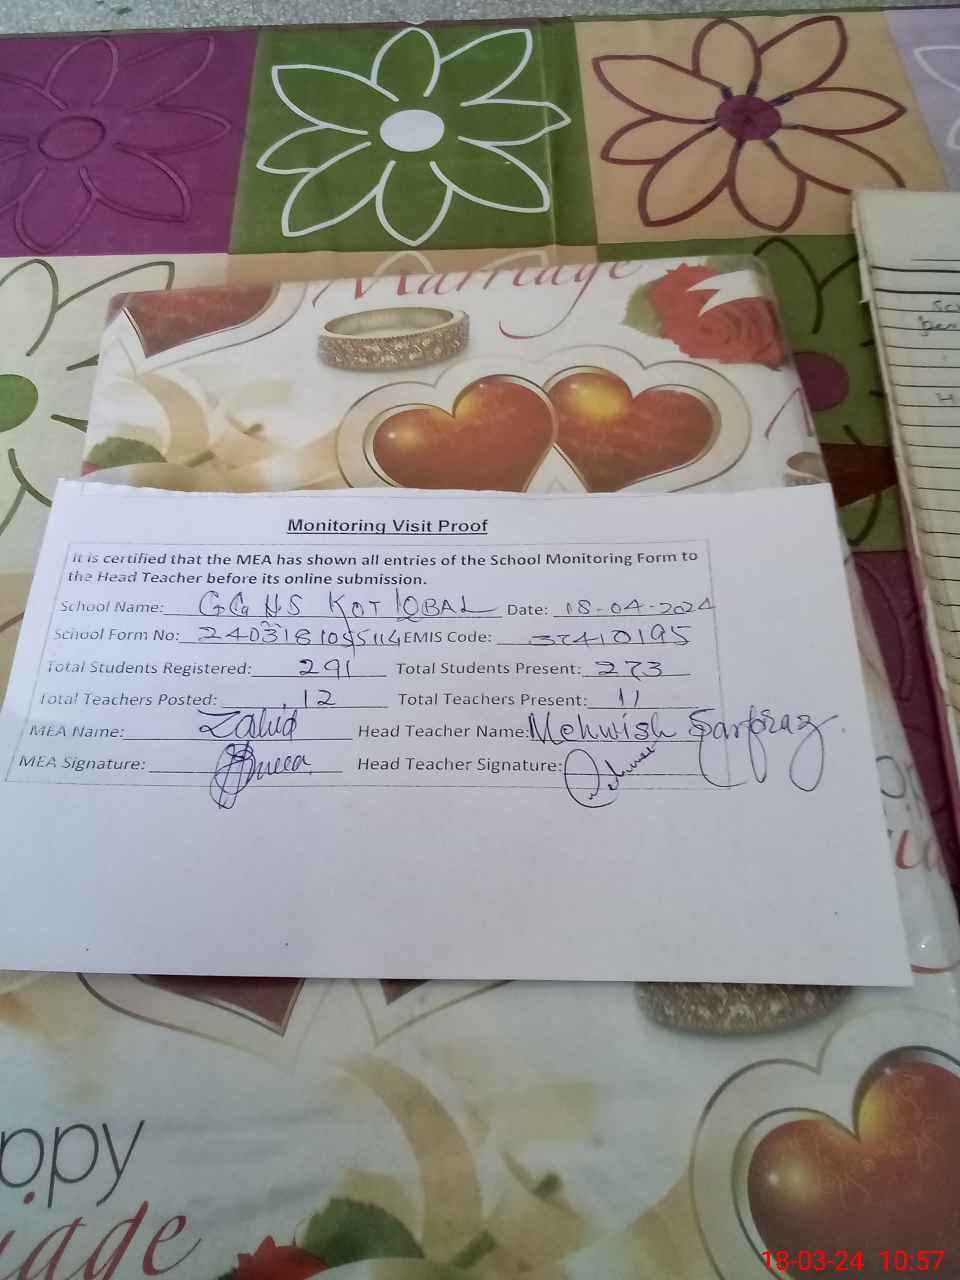 Marriage
Monitoring Visit Proof
It is certified that the MEA has shown all entries of the School Monitoring Form to
the Head Teacher before its online submission.
School Name: GGHS KOT IQBAL Date: 18-04-2024
School Form No: 2403181055114 EMIS Code: 37410195
Total Students Registered: 291 Total Students Present: 273
Total Teachers Posted: 12 Total Teachers Present: 11
MEA Name: Zahid Head Teacher Name: Mehwish Sarfraz
MEA Signature: Head Teacher Signature:
ppy
iage
18-03-24 10:57